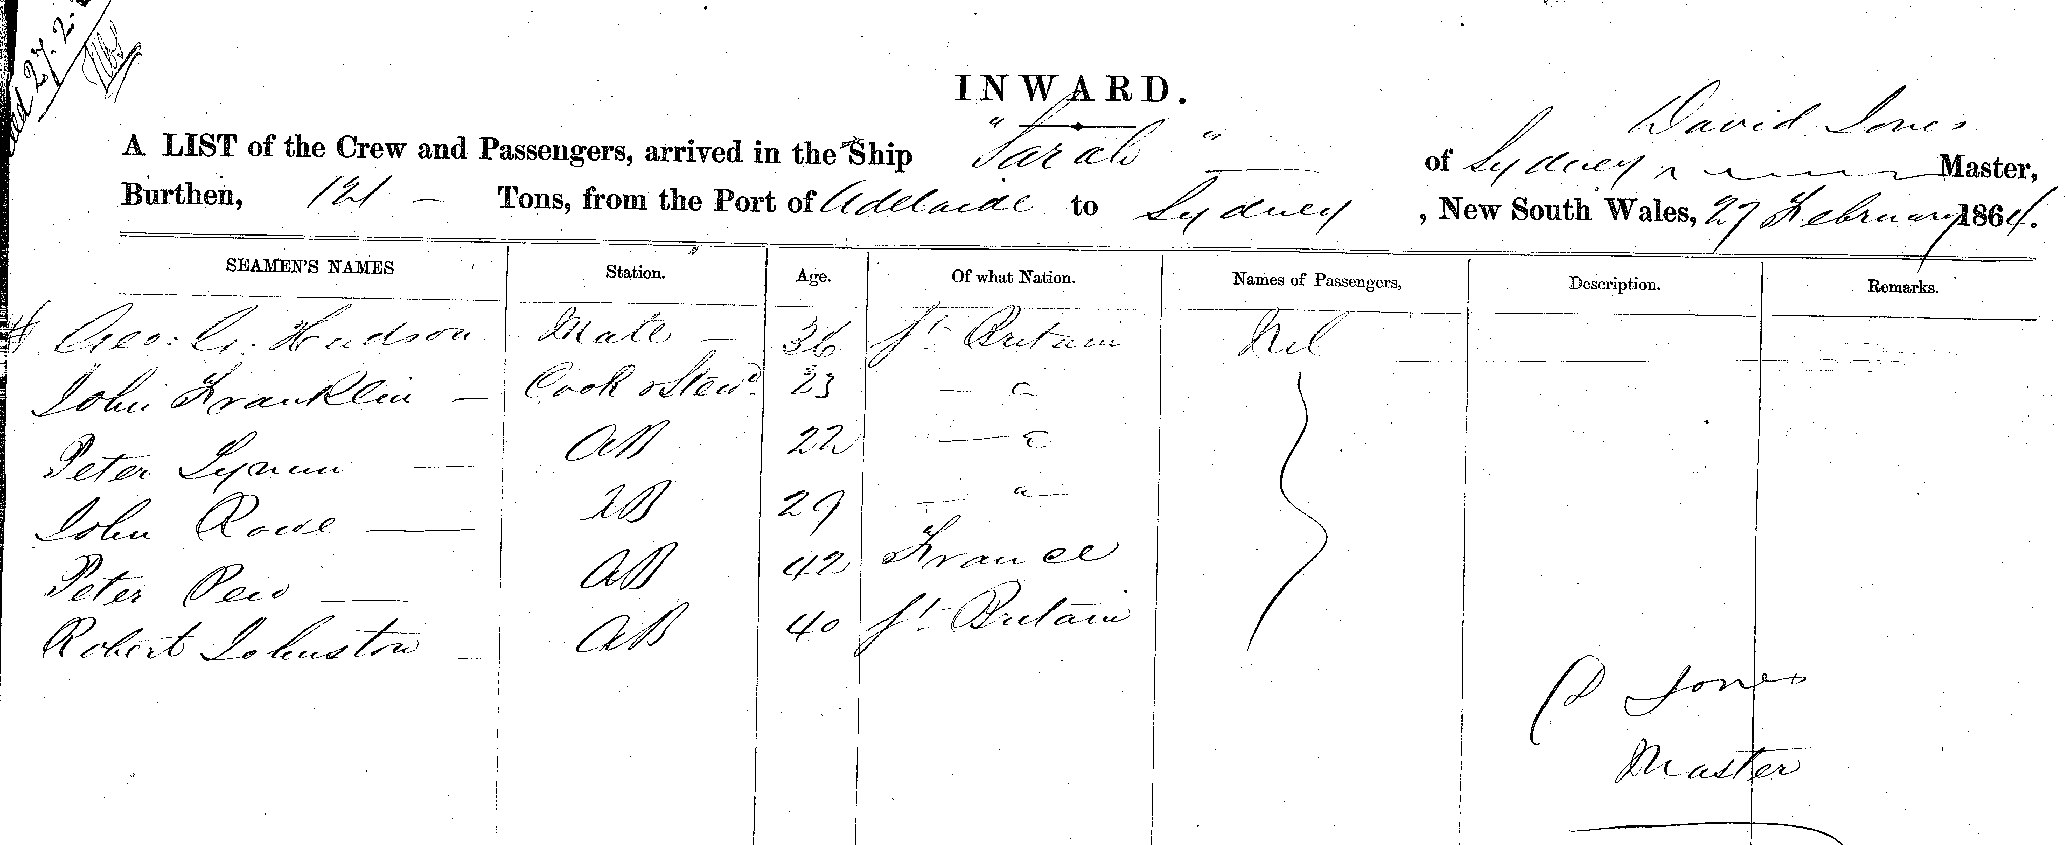 27.2.
INWARD.
David Jones
A LIST of the Crew and Passengers, arrived in the Ship "Sarah" of Sydney Master,
Burthen, 121 - Tons, from the Port of Adelaide to Sydney, New South Wales, 27 February 1864.
SEAMEN'S NAMES Station. Age. Of what Nation. Names of Passengers, Description. Remarks.
Geo: G. Hudson Mate - 36 Gt Britain Nil
John Franklin - Cook & Stewd 23 — "
Peter Lynum — AB 22 — "
John Rowe — AB 29 — " —
Peter Pew — AB 42 France
Robert Johnston - AB 40 Gt Britain
D Jones
Master